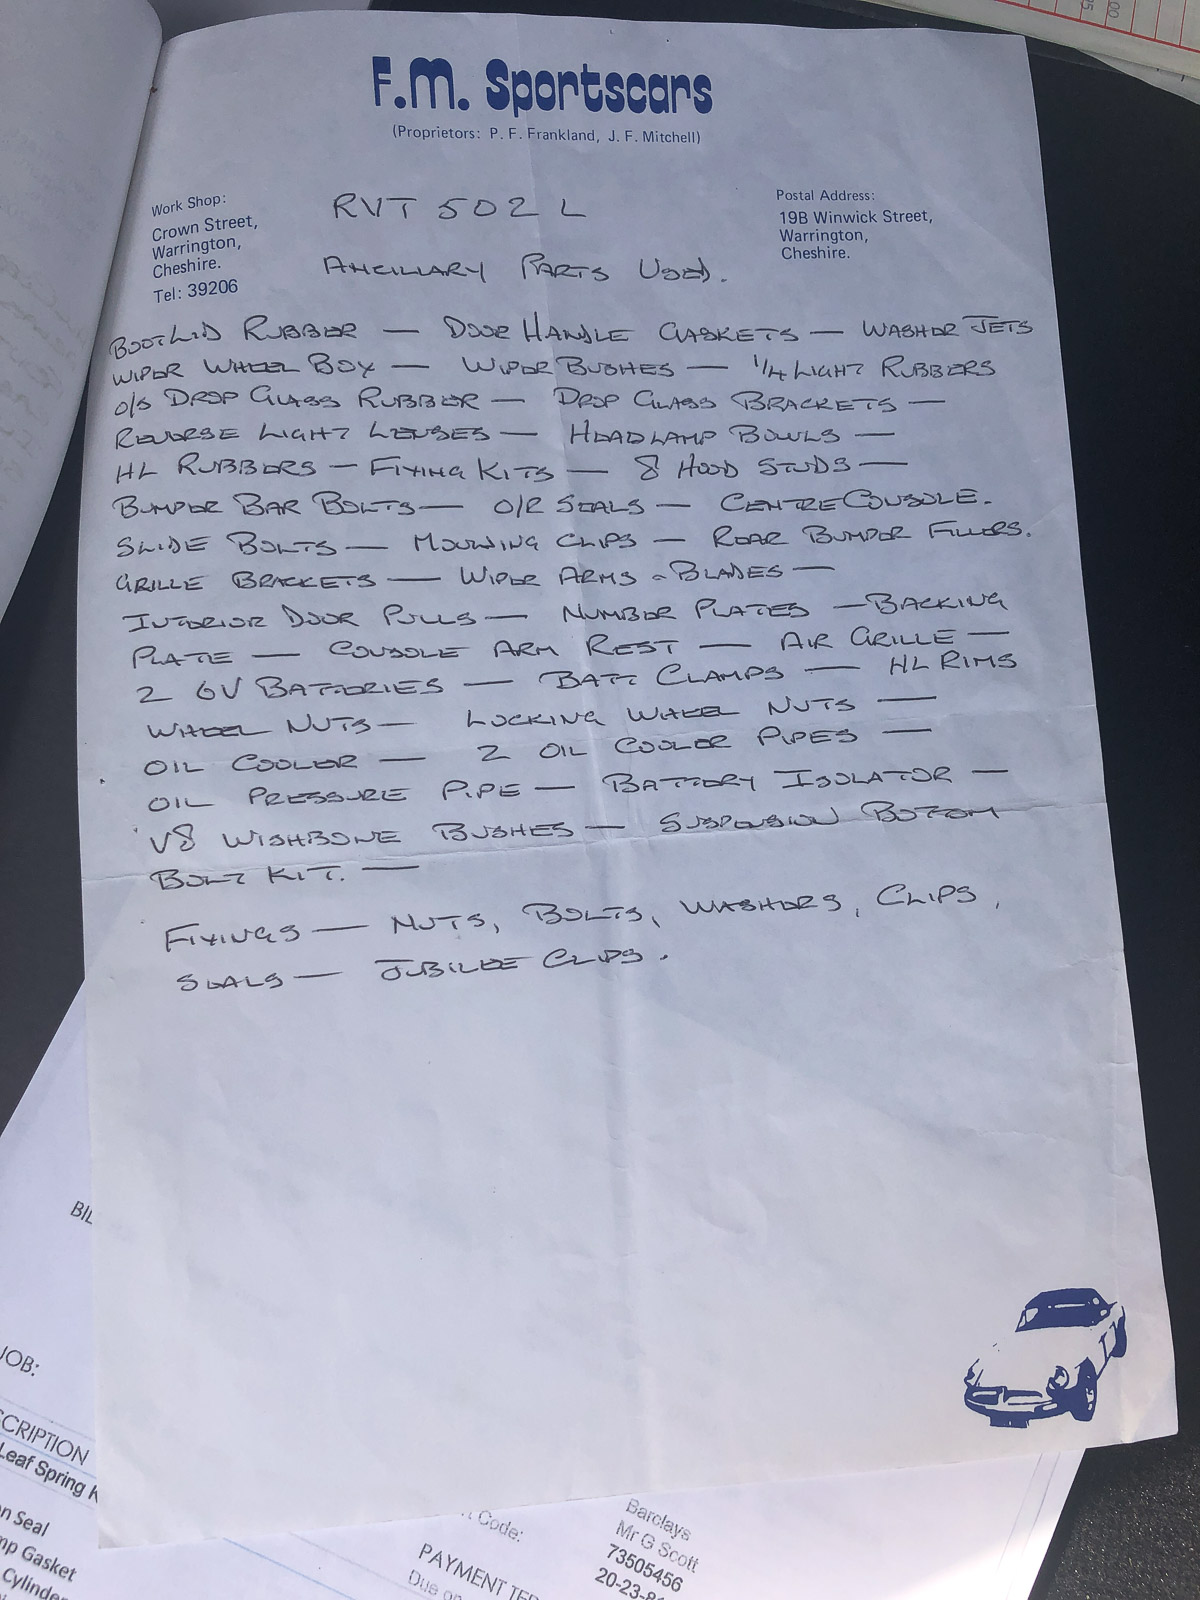 F.M. Sportscars
(Proprietors: P. F. Frankland, J. F. Mitchell)
Work Shop:
Crown Street,
Warrington,
Cheshire.
Tel: 39206
Postal Address:
19B Winwick Street,
Warrington,
Cheshire.
RVT 502 L
ANCILLARY PARTS USED.
BOOT LID RUBBER — DOOR HANDLE GASKETS — WASHER JETS
WIPER WHEEL BOX — WIPER BUSHES — 1/4 LIGHT RUBBERS
O/S DROP GLASS RUBBER — DROP GLASS BRACKETS —
REVERSE LIGHT LENSES — HEADLAMP BOWLS —
HL RUBBERS — FIXING KITS — 8 HOOD STUDS —
BUMPER BAR BOLTS — O/R SEALS — CENTRE CONSOLE.
SLIDE BOLTS — MOULDING CLIPS — REAR BUMPER FILLERS.
GRILLE BRACKETS — WIPER ARMS & BLADES —
INTERIOR DOOR PULLS — NUMBER PLATES — BACKING
PLATE — CONSOLE ARM REST — AIR GRILLE —
2 6V BATTERIES — BATT CLAMPS — HL RIMS
WHEEL NUTS — LOCKING WHEEL NUTS —
OIL COOLER — 2 OIL COOLER PIPES —
OIL PRESSURE PIPE — BATTERY ISOLATOR —
V8 WISHBONE BUSHES — SUSPENSION BOTTOM
BOLT KIT. —
FIXINGS — NUTS, BOLTS, WASHERS, CLIPS,
SEALS — JUBILEE CLIPS.
BIL
JOB:
SCRIPTION
Leaf Spring K
n Seal
mp Gasket
Cylinde
Code:
PAYMENT TER
Due on
Barclays
Mr G Scott
73505456
20-23-8